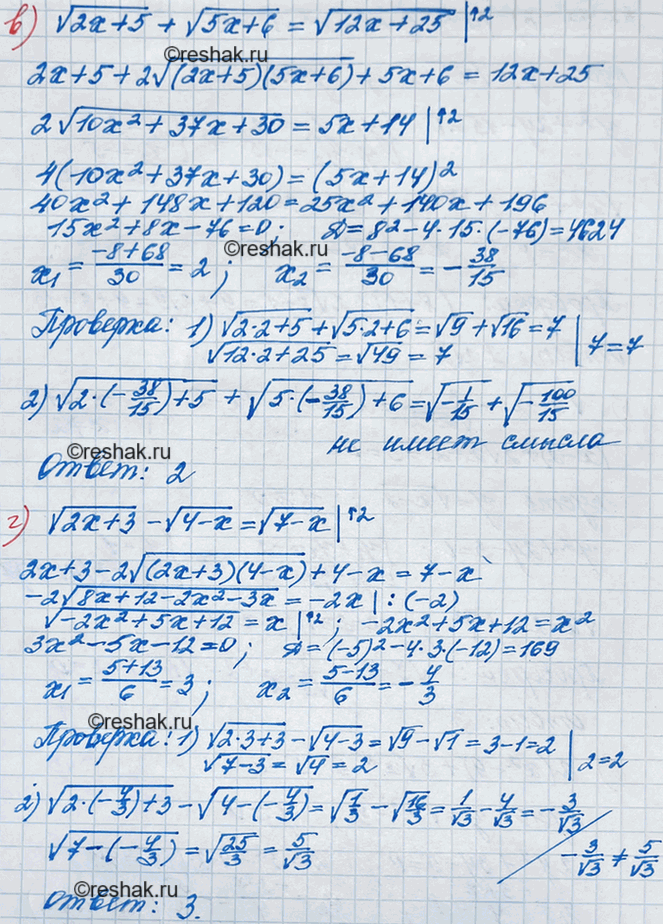 в) √(2x+5) + √(5x+6) = √(12x+25) |↑2
©reshak.ru
2x+5+2√((2x+5)(5x+6))+5x+6 = 12x+25
2√(10x²+37x+30) = 5x+14 |↑2
4(10x²+37x+30) = (5x+14)²
40x²+148x+120 = 25x²+140x+196
15x²+8x-76=0; D=8²-4·15·(-76)=4624
x₁ = (-8+68)/30 = 2; x₂ = (-8-68)/30 = -38/15
Проверка: 1) √(2·2+5)+√(5·2+6)=√9+√16=7
√(12·2+25)=√49=7 | 7=7
2) √(2·(-38/15)+5) + √(5·(-38/15)+6)=√(-1/15)+√(-100/15)
©reshak.ru
не имеет смысла
Ответ: 2
г) √(2x+3) - √(4-x) = √(7-x) |↑2
2x+3-2√((2x+3)(4-x))+4-x = 7-x
-2√(8x+12-2x²-3x) = -2x |:(-2)
√(-2x²+5x+12) = x |↑2; -2x²+5x+12=x²
3x²-5x-12=0; D=(-5)²-4·3·(-12)=169
x₁ = (5+13)/6 = 3; x₂ = (5-13)/6 = -4/3
©reshak.ru
Проверка: 1) √(2·3+3)-√(4-3)=√9-√1=3-1=2
√(7-3)=√4=2 | 2=2
2) √(2·(-4/3)+3)-√(4-(-4/3))=√(1/3)-√(16/3)=1/√3-4/√3=-3/√3
√(7-(-4/3))=√(25/3)=5/√3 -3/√3≠5/√3
Ответ: 3.
©reshak.ru